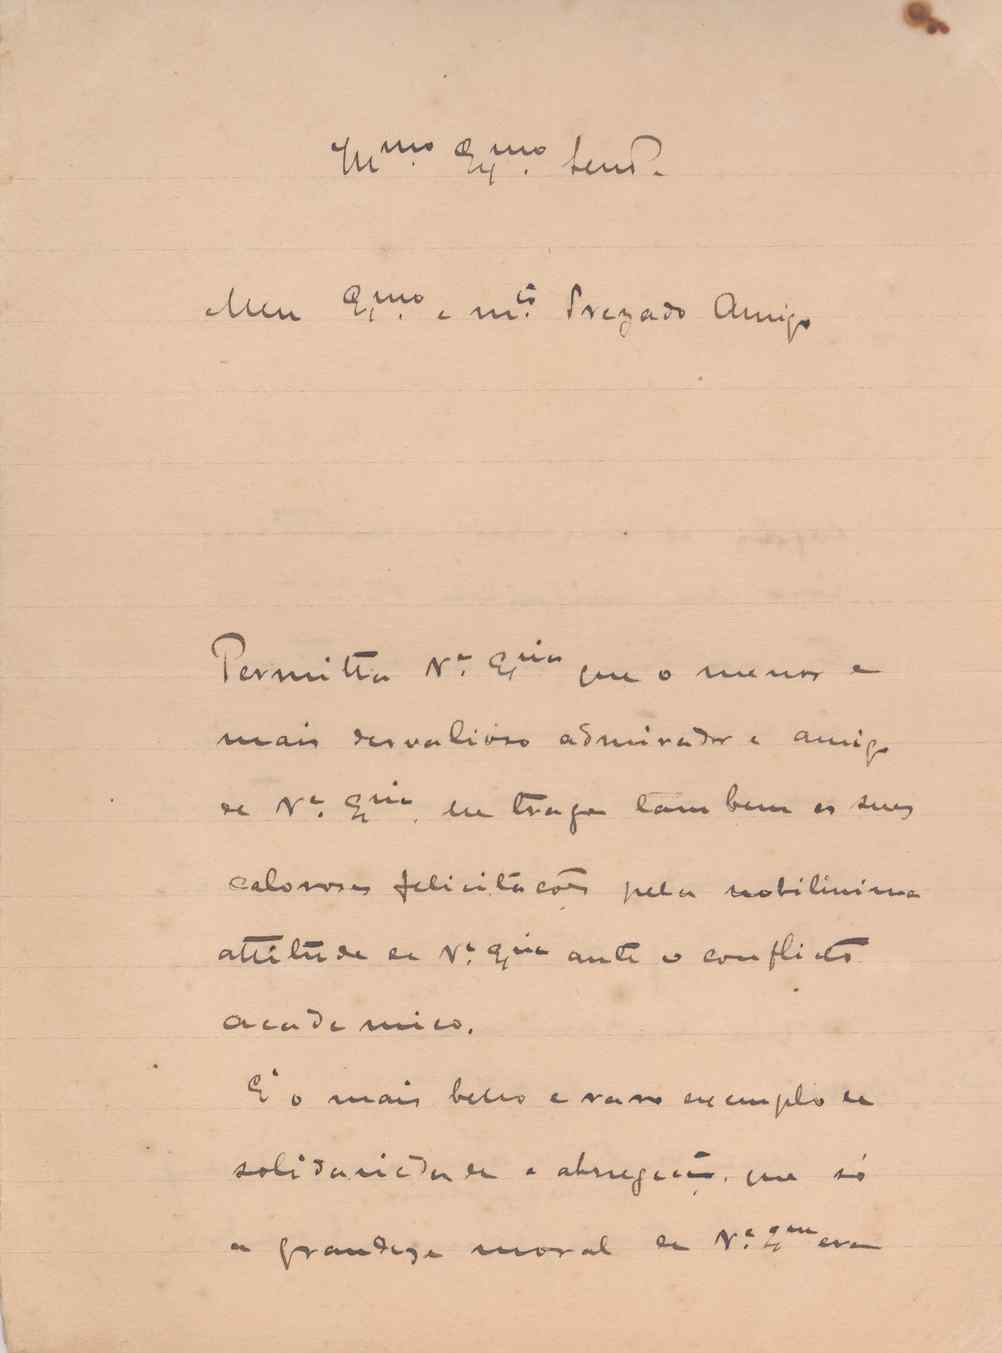 Ill.mo Ex.mo Senr.
Meu Ex.mo e m.to Prezado Amigo
Permitta V.ª Ex.cia que o menor e
mais desvalioso admirador e amigo
de V.ª Ex.cia lhe traga tambem as suas
calorosas felicitações pela nobilissima
attitude de V.ª Ex.cia ante o conflicto
academico.
E' o mais bello e raro exemplo de
solidariedade e abnegação, que só
a grandeza moral de V.ª Ex.cia era